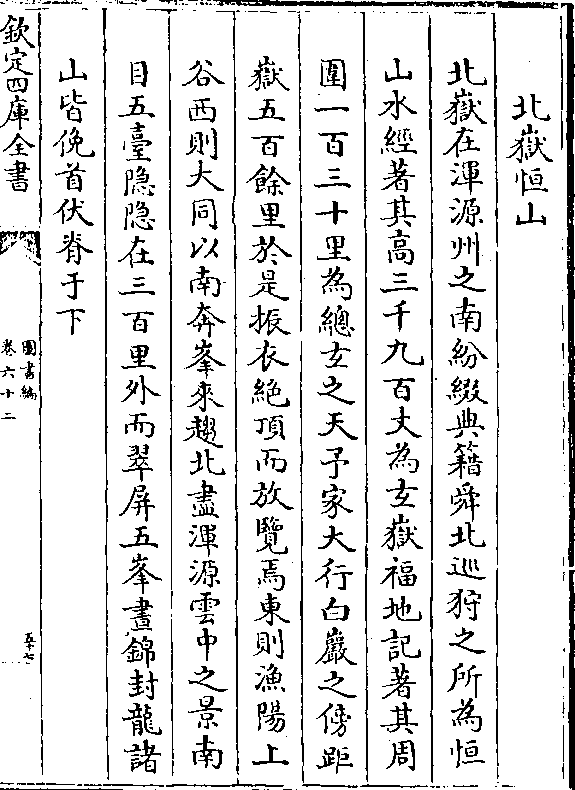 北嶽恒山
北嶽在渾源州之南紛綴典籍舜北巡狩之所為恒
山水經著其高三千九百丈為𤣥嶽福地記著其周
圍一百三十里為總𤣥之天予家大行白巖之傍距
嶽五百餘里於是振衣絶頂而放覽焉東則漁陽上
谷西則大同以南奔峯來趨北盡渾源雲中之景南
目五臺隐隐在三百里外而翠屏五峯畫錦封龍諸
山皆俛首伏脊于下
欽定四庫全書
圖書編
卷六十二
五十七